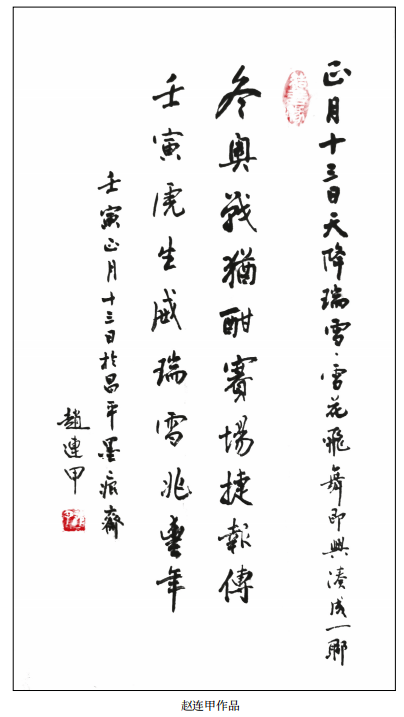 正月十三日天降瑞雪、雪花飛舞即興湊成一聯
冬奧戰猶酣賽場捷報傳
壬寅虎生威瑞雪兆豊年
壬寅正月十三日於昌平墨痕齋
趙連甲
赵连甲作品